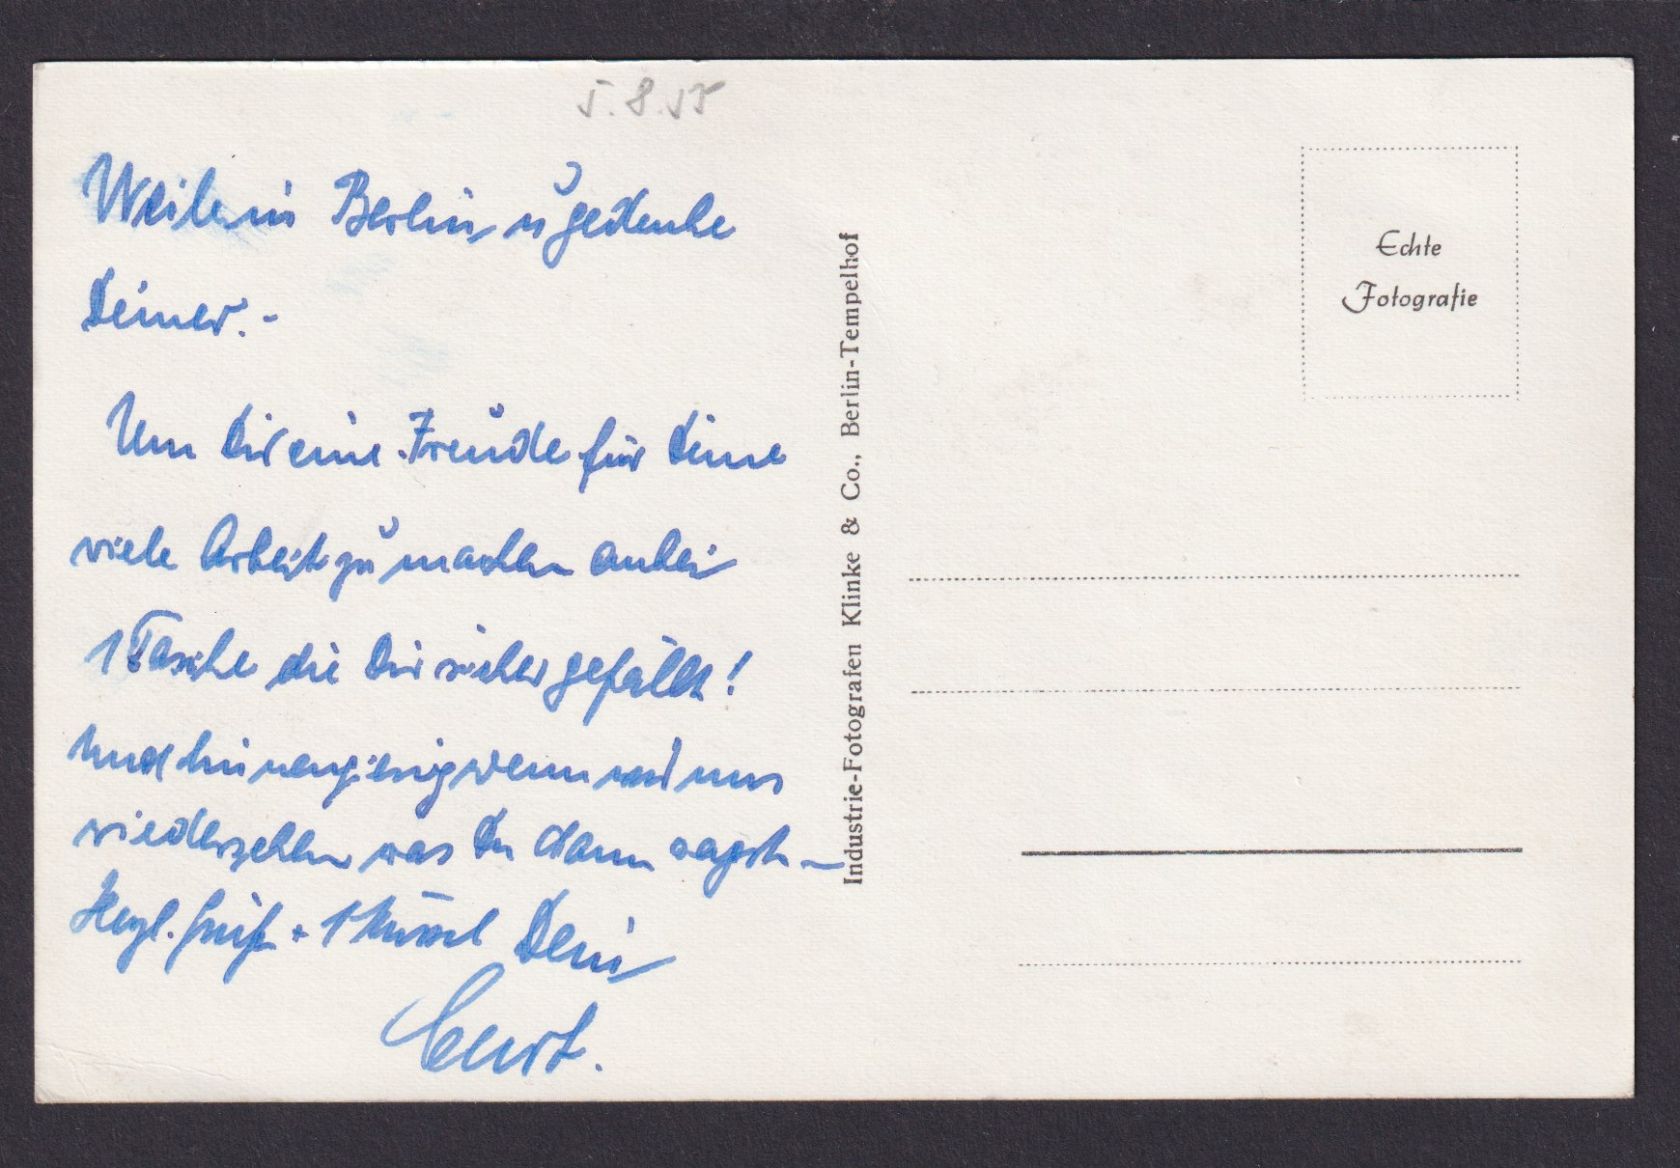 5.8.55
Weile in Berlin u gedenke
Deiner. -
Um Dir eine Freude für Deine
viele Arbeit zu machen anbei
1 Tasche die Dir sicher gefällt!
Und bin neugierig wenn wir uns
wiedersehen was Du dann sagst -
Herzl. Gruß + 1 Küssel Dein
Curt.
Industrie-Fotografen Klinke & Co., Berlin-Tempelhof
Echte
Fotografie